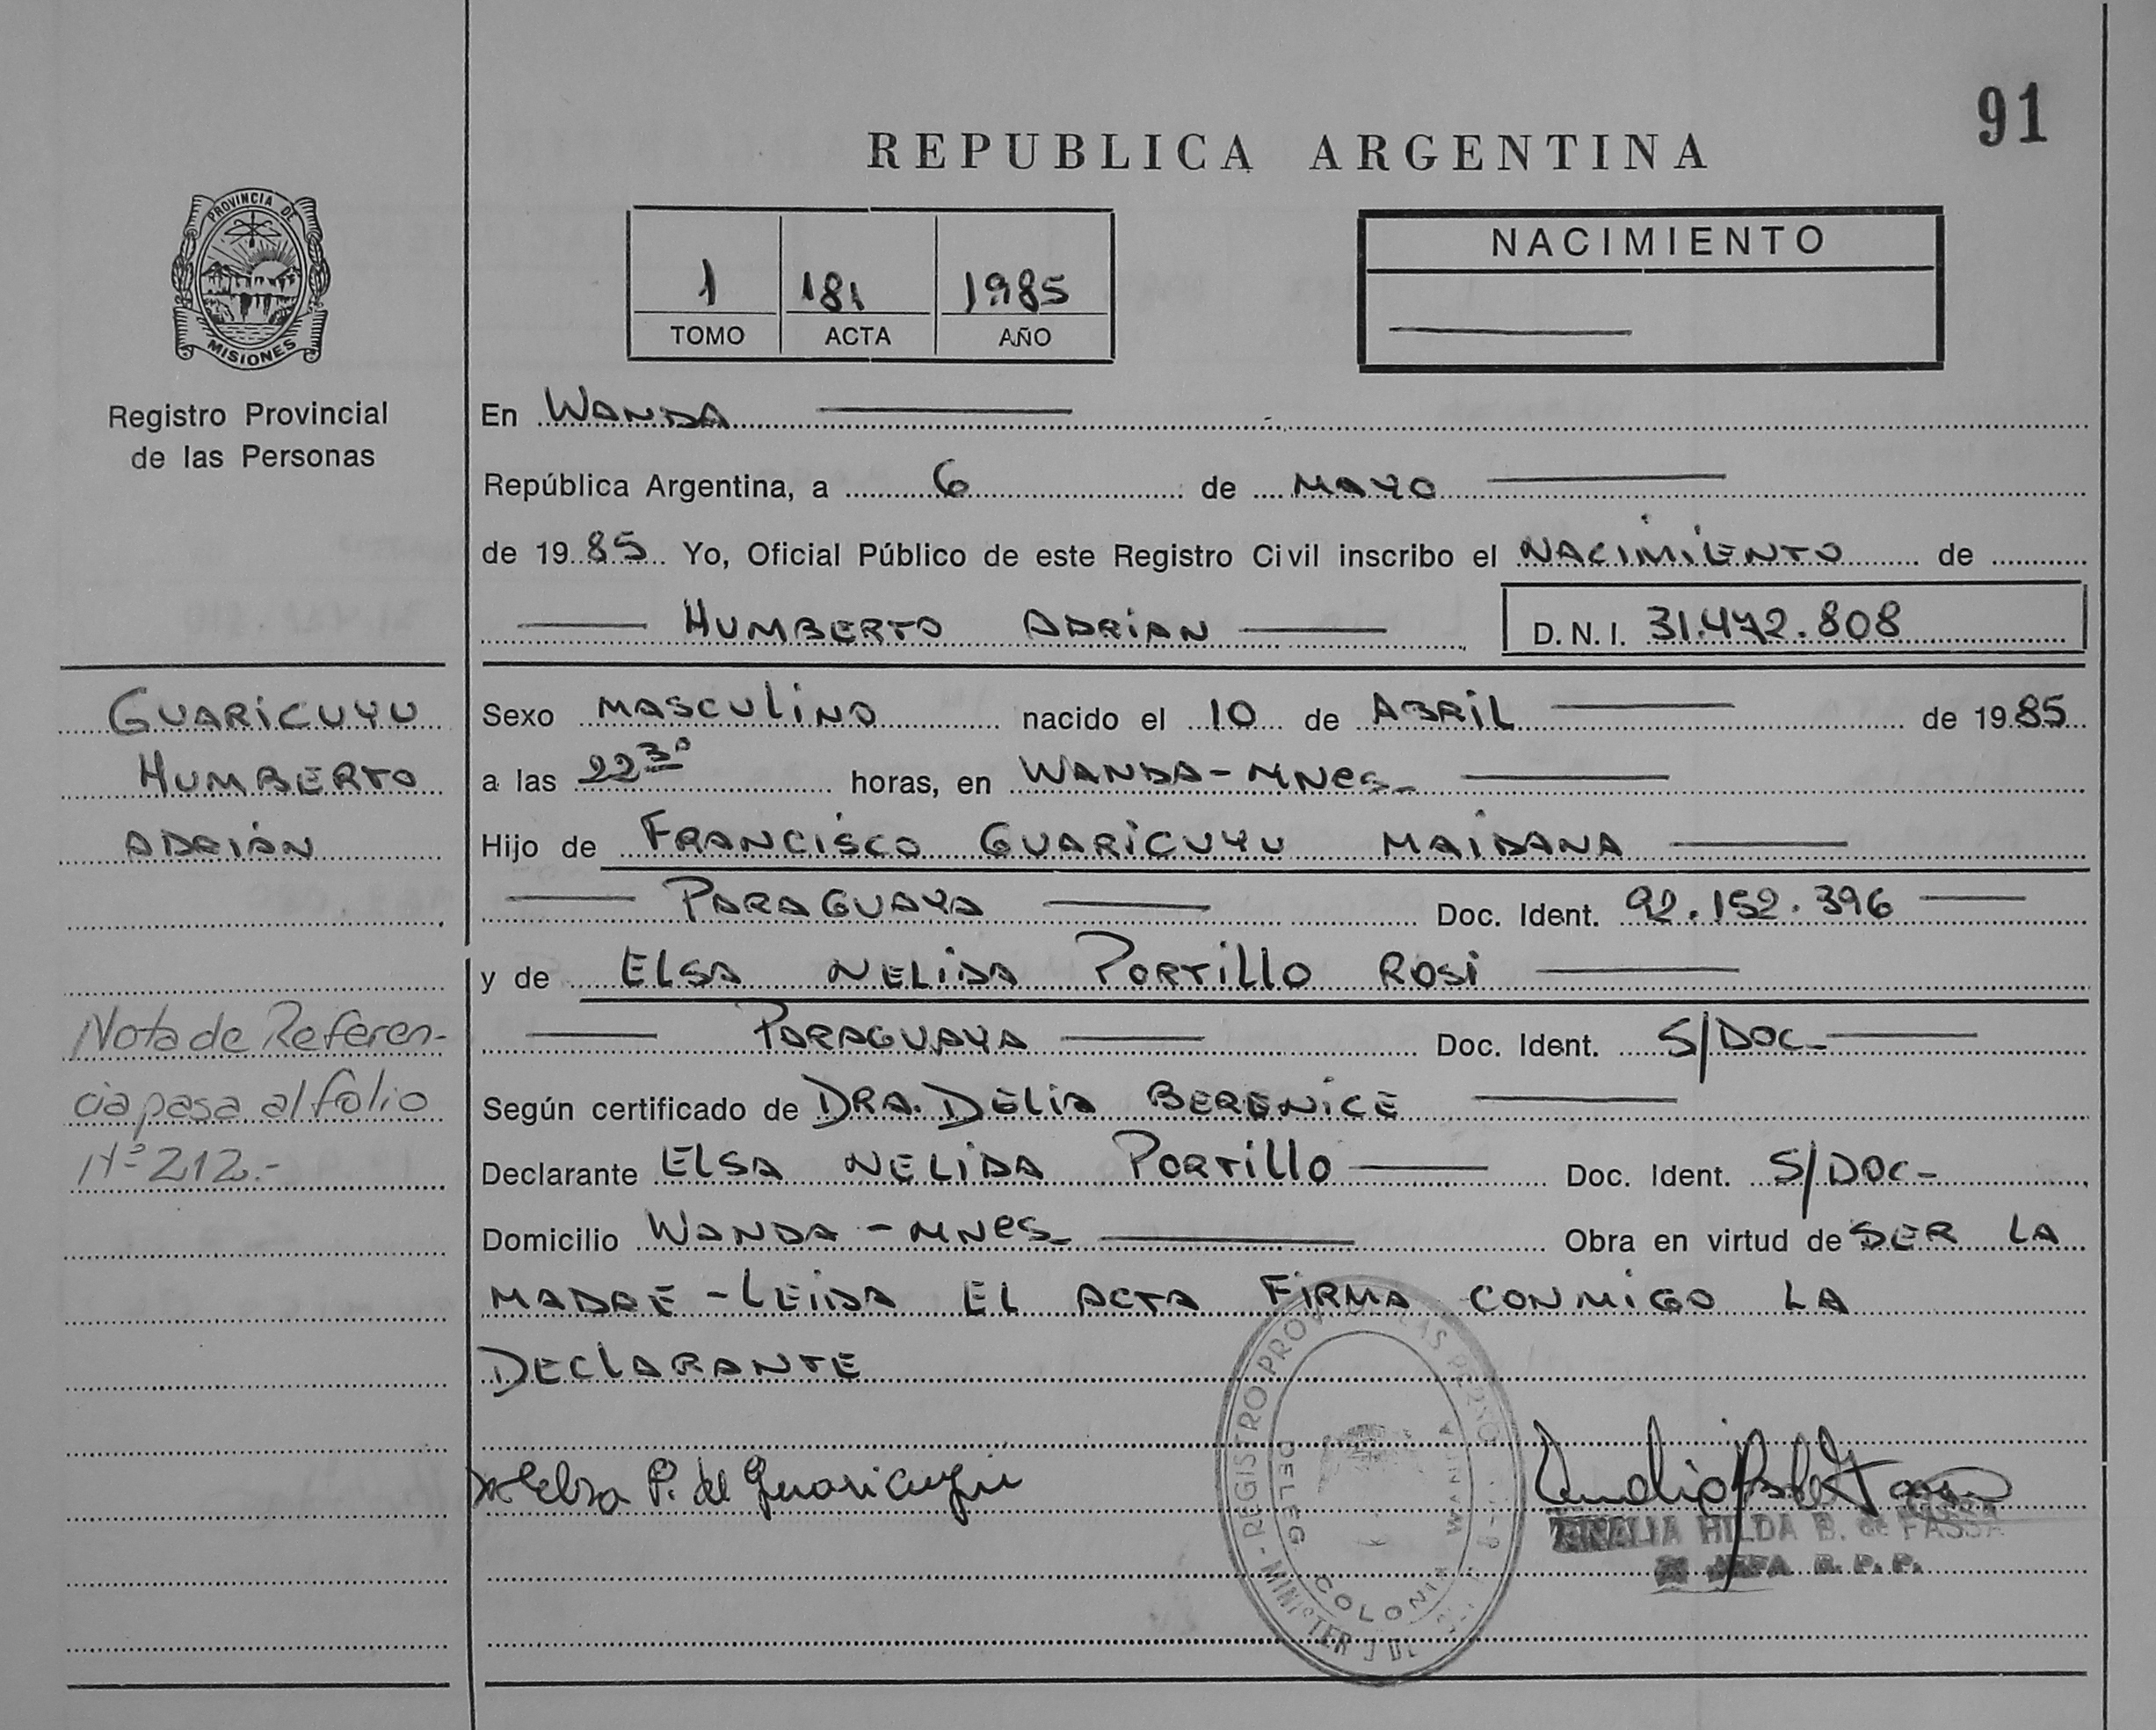 91
REPUBLICA ARGENTINA
PROVINCIA DE
MISIONES
Registro Provincial
de las Personas
1 181 1985
TOMO ACTA AÑO
NACIMIENTO
En WANDA
República Argentina, a 6 de MAYO
de 1985 Yo, Oficial Público de este Registro Civil inscribo el NACIMIENTO de
HUMBERTO ADRIAN D.N.I. 31.472.808
GUARICUYU
HUMBERTO
ADRIAN
Sexo MASCULINO nacido el 10 de ABRIL de 1985
a las 22 30 horas, en WANDA-MNES
Hijo de FRANCISCO GUARICUYU MAIDANA
PARAGUAYA Doc. Ident. 92.152.396
y de ELSA NELIDA PORTILLO ROSI
PARAGUAYA Doc. Ident. S/DOC-
Según certificado de DRA. DELIA BERENICE
Declarante ELSA NELIDA PORTILLO Doc. Ident. S/DOC-
Domicilio WANDA - MNES Obra en virtud de SER LA
MADRE - LEIDA EL ACTA FIRMA CONMIGO LA
DECLARANTE
Nota de Referen-
cia pasa al folio
Nº 212.-
x Elsa P. de Guaricuyu
REGISTRO PROV LAS
DELEG COLONIA WANDA
HILDA B. de FASSA
JEFA R. P. P.